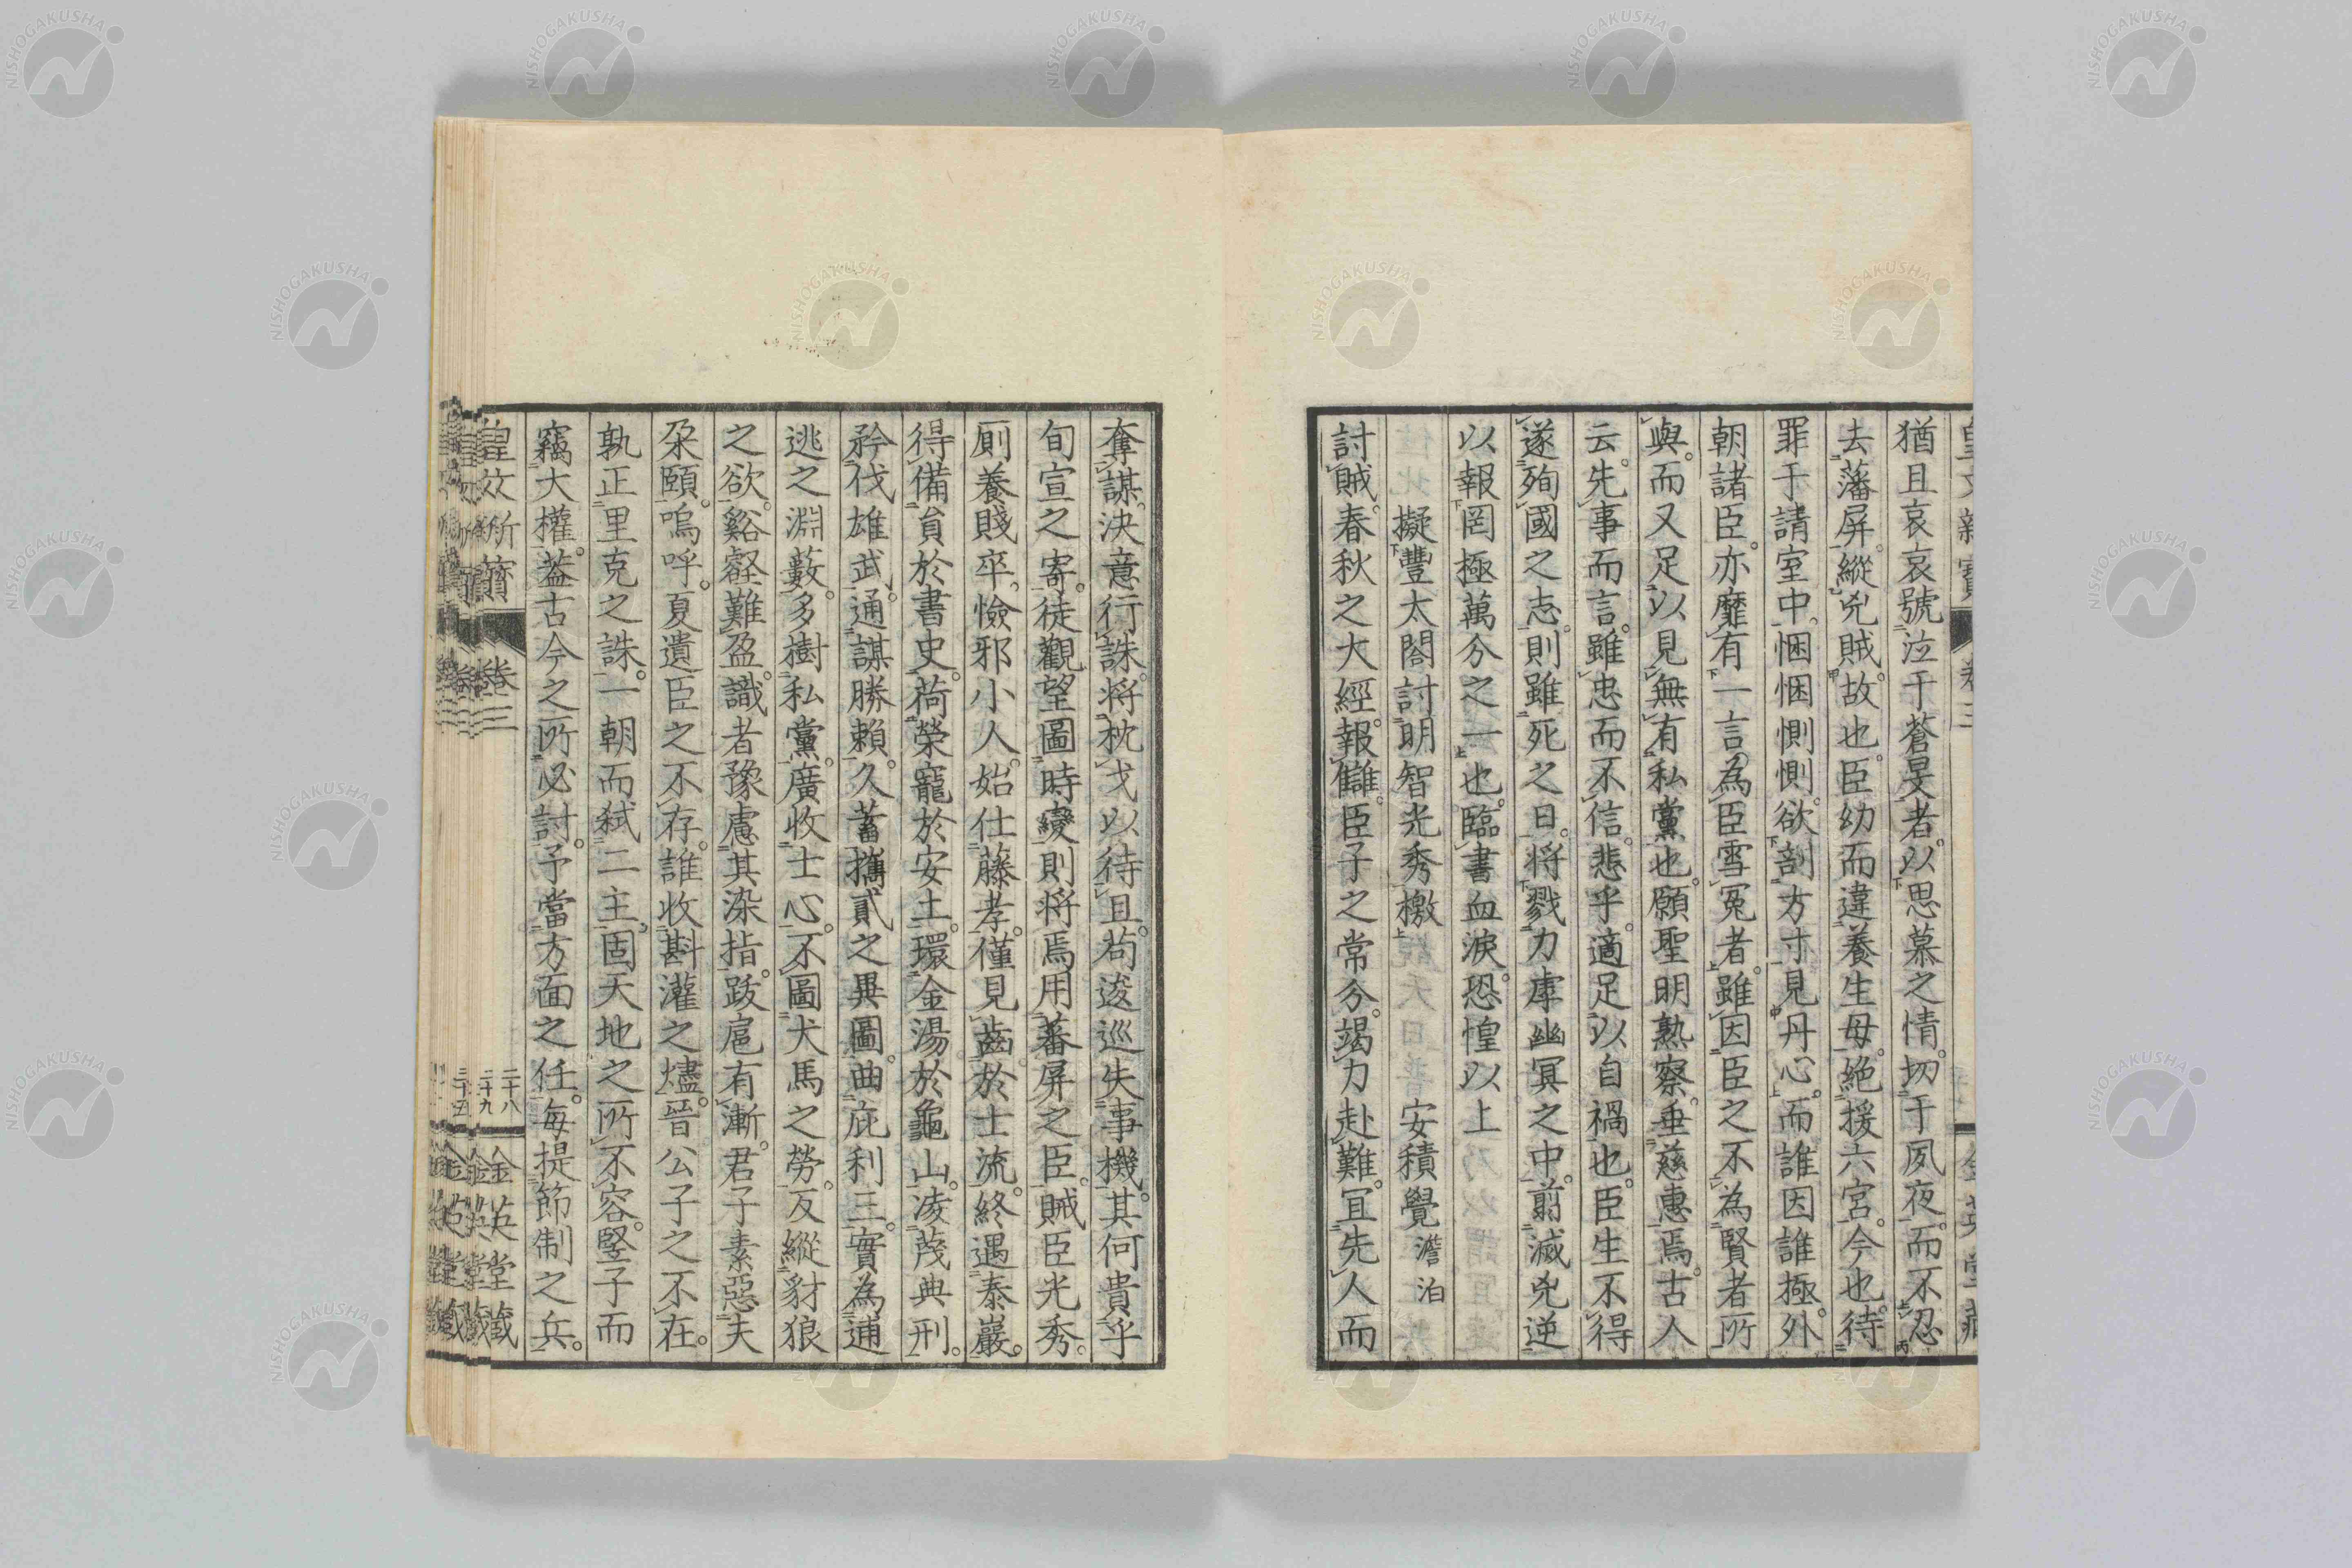 猶且哀哀號泣于蒼旻者。以思慕之情。切于夙夜。而不忍
去藩屏。縱兇賊。故也。臣幼而違養生母。絶援六宮。今也。待
罪于請室中。悃悃惻惻。欲剖方寸見丹心。而誰因誰極。外
朝諸臣。亦靡有一言為臣雪冤者。雖因臣之不為賢者所
與。而又足以見無有私黨也。願聖明熟察。垂慈惠焉。古人
云。先事而言。雖忠而不信。悲乎。適足以自禍也。臣生不得
遂殉國之志。則雖死之日。將戮力虖幽冥之中。翦滅兇逆
以報罔極萬分之一也。臨書血淚。恐惶以上
擬豐太閤討明智光秀檄 安積覺 澹泊
討賊。春秋之大經。報讎。臣子之常分。竭力赴難。冝先人而
奪謀。決意行誅。將枕戈以待旦。苟逡巡失事機。其何貴乎
旬宣之寄。徒觀望圖時變。則將焉用蕃屏之臣。賊臣光秀。
厠養賤卒。憸邪小人。始仕藤孝。僅見齒於士流。終遇泰巖。
得備員於書史。荷榮寵於安土。環金湯於龜山。淩蔑典刑。
矜伐雄武。通謀勝賴。久蓄攜貳之異圖。曲庇利三。實為逋
逃之淵藪。多樹私黨。廣收士心。不圖犬馬之勞。反縱豺狼
之欲。谿壑難盈。識者豫慮其染指。跋扈有漸。君子素惡夫
朶頤。嗚呼。夏遺臣之不存。誰收斟灌之燼。晉公子之不在。
孰正里克之誅。一朝而弒二主。固天地之所不容。竪子而
竊大權。葢古今之所必討。予當方面之任。每提節制之兵。
皇文
卷三
二十八
金英堂藏